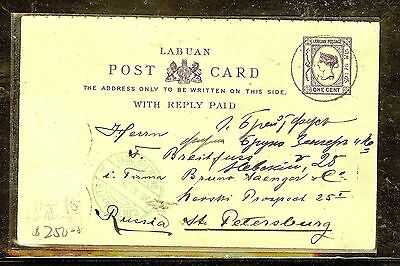 LABUAN
POST CARD
THE ADDRESS ONLY TO BE WRITTEN ON THIS SIDE.
WITH REPLY PAID
LABUAN POSTAGE
ONE CENT
Herrn
Г. Брейтфусъ
Бруно Зенгеръ и Ко
F. Breitfuss
Невскій, 25
i. Firma Bruno Saenger & Co.
Nevski Prospect 25
Russia St. Petersburg
$250-